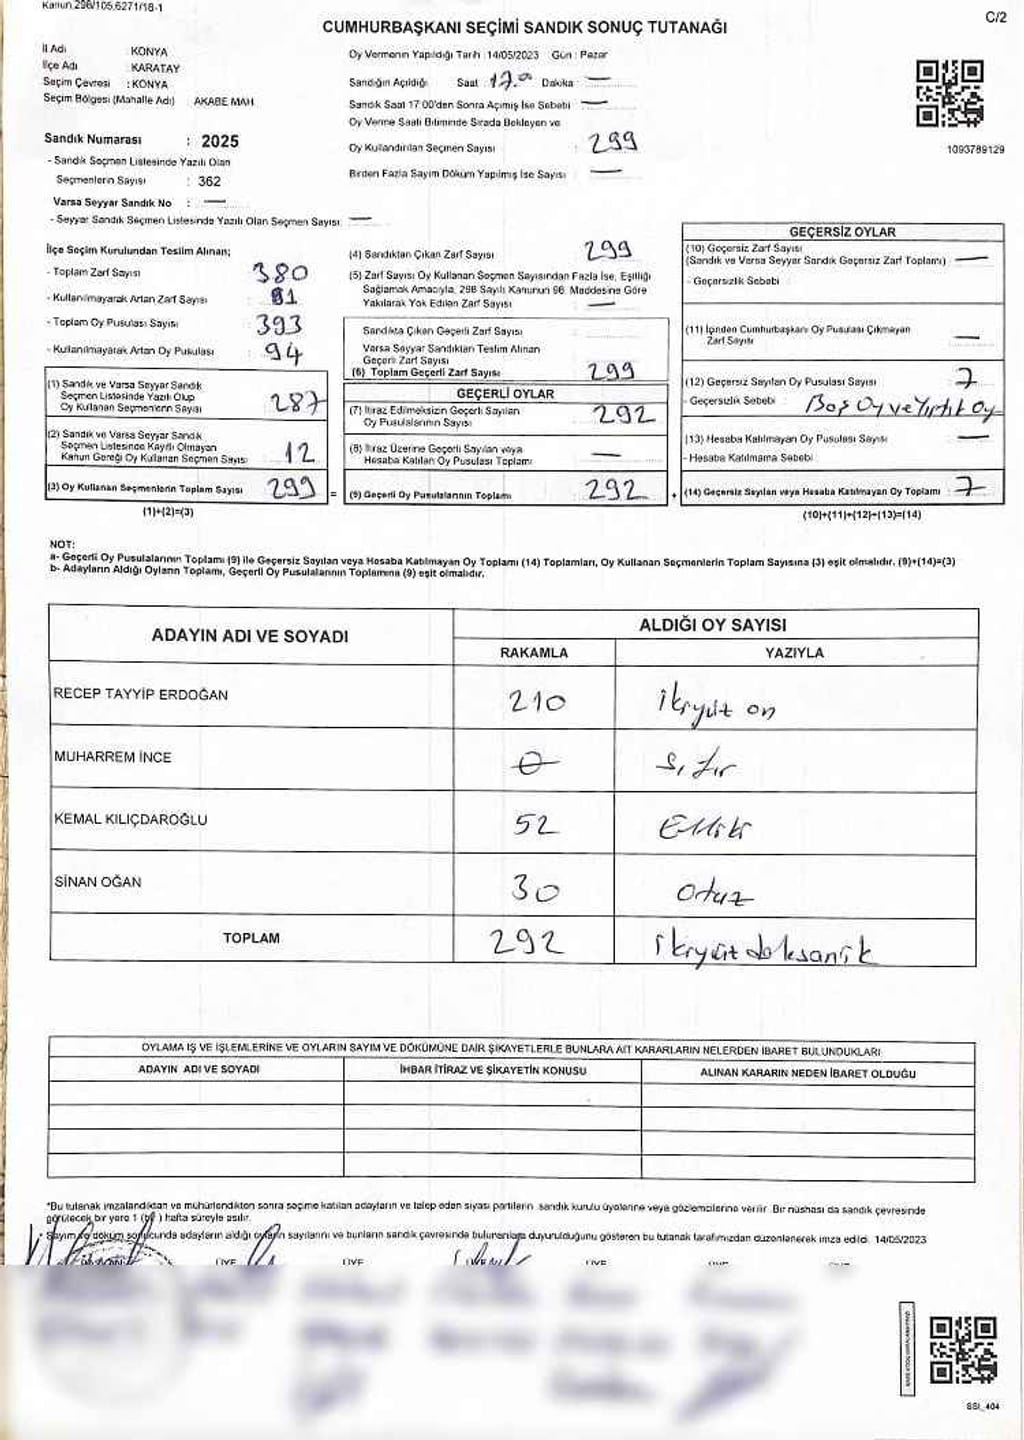 Kanun,298/105,6271/18-1
C/2
CUMHURBAŞKANI SEÇİMİ SANDIK SONUÇ TUTANAĞI
İl Adı KONYA
İlçe Adı KARATAY
Seçim Çevresi : KONYA
Seçim Bölgesi (Mahalle Adı) AKABE MAH
Sandık Numarası : 2025
- Sandık Seçmen Listesinde Yazılı Olan
Seçmenlerin Sayısı : 362
Varsa Seyyar Sandık No : —
- Seyyar Sandık Seçmen Listesinde Yazılı Olan Seçmen Sayısı: —
Oy Vermenin Yapıldığı Tarih : 14/05/2023 Gün : Pazar
Sandığın Açıldığı Saat 17.00 Dakika : —
Sandık Saat 17:00'den Sonra Açılmış İse Sebebi : —
Oy Verme Saati Bitiminde Sırada Bekleyen ve
Oy Kullandırılan Seçmen Sayısı : 299
Birden Fazla Sayım Döküm Yapılmış İse Sayısı : —
1093789129
İlçe Seçim Kurulundan Teslim Alınan;
- Toplam Zarf Sayısı 380
- Kullanılmayarak Artan Zarf Sayısı 81
- Toplam Oy Pusulası Sayısı 393
- Kullanılmayarak Artan Oy Pusulası 94
(1) Sandık ve Varsa Seyyar Sandık
Seçmen Listesinde Yazılı Olup
Oy Kullanan Seçmenlerin Sayısı 287
(2) Sandık ve Varsa Seyyar Sandık
Seçmen Listesinde Kayıtlı Olmayan
Kanun Gereği Oy Kullanan Seçmen Sayısı 12
(3) Oy Kullanan Seçmenlerin Toplam Sayısı 299 =
(1)+(2)=(3)
(4) Sandıktan Çıkan Zarf Sayısı 299
(5) Zarf Sayısı Oy Kullanan Seçmen Sayısından Fazla İse, Eşitliği
Sağlamak Amacıyla, 298 Sayılı Kanunun 98. Maddesine Göre
Yakılarak Yok Edilen Zarf Sayısı : —
Sandıkta Çıkan Geçerli Zarf Sayısı
Varsa Seyyar Sandıktan Teslim Alınan
Geçerli Zarf Sayısı
(6) Toplam Geçerli Zarf Sayısı 299
GEÇERLİ OYLAR
(7) İtiraz Edilmeksizin Geçerli Sayılan
Oy Pusulalarının Sayısı 292
(8) İtiraz Üzerine Geçerli Sayılan veya
Hesaba Katılan Oy Pusulası Toplamı —
(9) Geçerli Oy Pusulalarının Toplamı 292 +
GEÇERSİZ OYLAR
(10) Geçersiz Zarf Sayısı
(Sandık ve Varsa Seyyar Sandık Geçersiz Zarf Toplamı) —
- Geçersizlik Sebebi :
(11) İçinden Cumhurbaşkanı Oy Pusulası Çıkmayan
Zarf Sayısı —
(12) Geçersiz Sayılan Oy Pusulası Sayısı 7
- Geçersizlik Sebebi : Boş Oy ve Yırtık Oy
(13) Hesaba Katılmayan Oy Pusulası Sayısı —
- Hesaba Katılmama Sebebi :
(14) Geçersiz Sayılan veya Hesaba Katılmayan Oy Toplamı 7
(10)+(11)+(12)+(13)=(14)
NOT:
a- Geçerli Oy Pusulalarının Toplamı (9) ile Geçersiz Sayılan veya Hesaba Katılmayan Oy Toplamı (14) Toplamları, Oy Kullanan Seçmenlerin Toplam Sayısına (3) eşit olmalıdır. (9)+(14)=(3)
b- Adayların Aldığı Oyların Toplamı, Geçerli Oy Pusulalarının Toplamına (9) eşit olmalıdır.
ADAYIN ADI VE SOYADI ALDIĞI OY SAYISI
RAKAMLA YAZIYLA
RECEP TAYYİP ERDOĞAN 210 ikiyüz on
MUHARREM İNCE 0 Sıfır
KEMAL KILIÇDAROĞLU 52 Elliiki
SİNAN OĞAN 30 Otuz
TOPLAM 292 ikiyüzdoksaniki
OYLAMA İŞ VE İŞLEMLERİNE VE OYLARIN SAYIM VE DÖKÜMÜNE DAİR ŞİKAYETLERLE BUNLARA AİT KARARLARIN NELERDEN İBARET BULUNDUKLARI
ADAYIN ADI VE SOYADI İHBAR İTİRAZ VE ŞİKAYETİN KONUSU ALINAN KARARIN NEDEN İBARET OLDUĞU
*Bu tutanak imzalandıktan ve mühürlendikten sonra seçime katılan adayların ve talep eden siyasi partilerin sandık kurulu üyelerine veya gözlemcilerine verilir. Bir nüshası da sandık çevresinde
görülecek bir yere 1 (bir) hafta süreyle asılır.
Sayım ve döküm sonucunda adayların aldığı oyların sayılarını ve bunların sandık çevresinde bulunanlara duyurulduğunu gösteren bu tutanak tarafımızdan düzenlenerek imza edildi. 14/05/2023
ÜYE ÜYE ÜYE
SSI_404